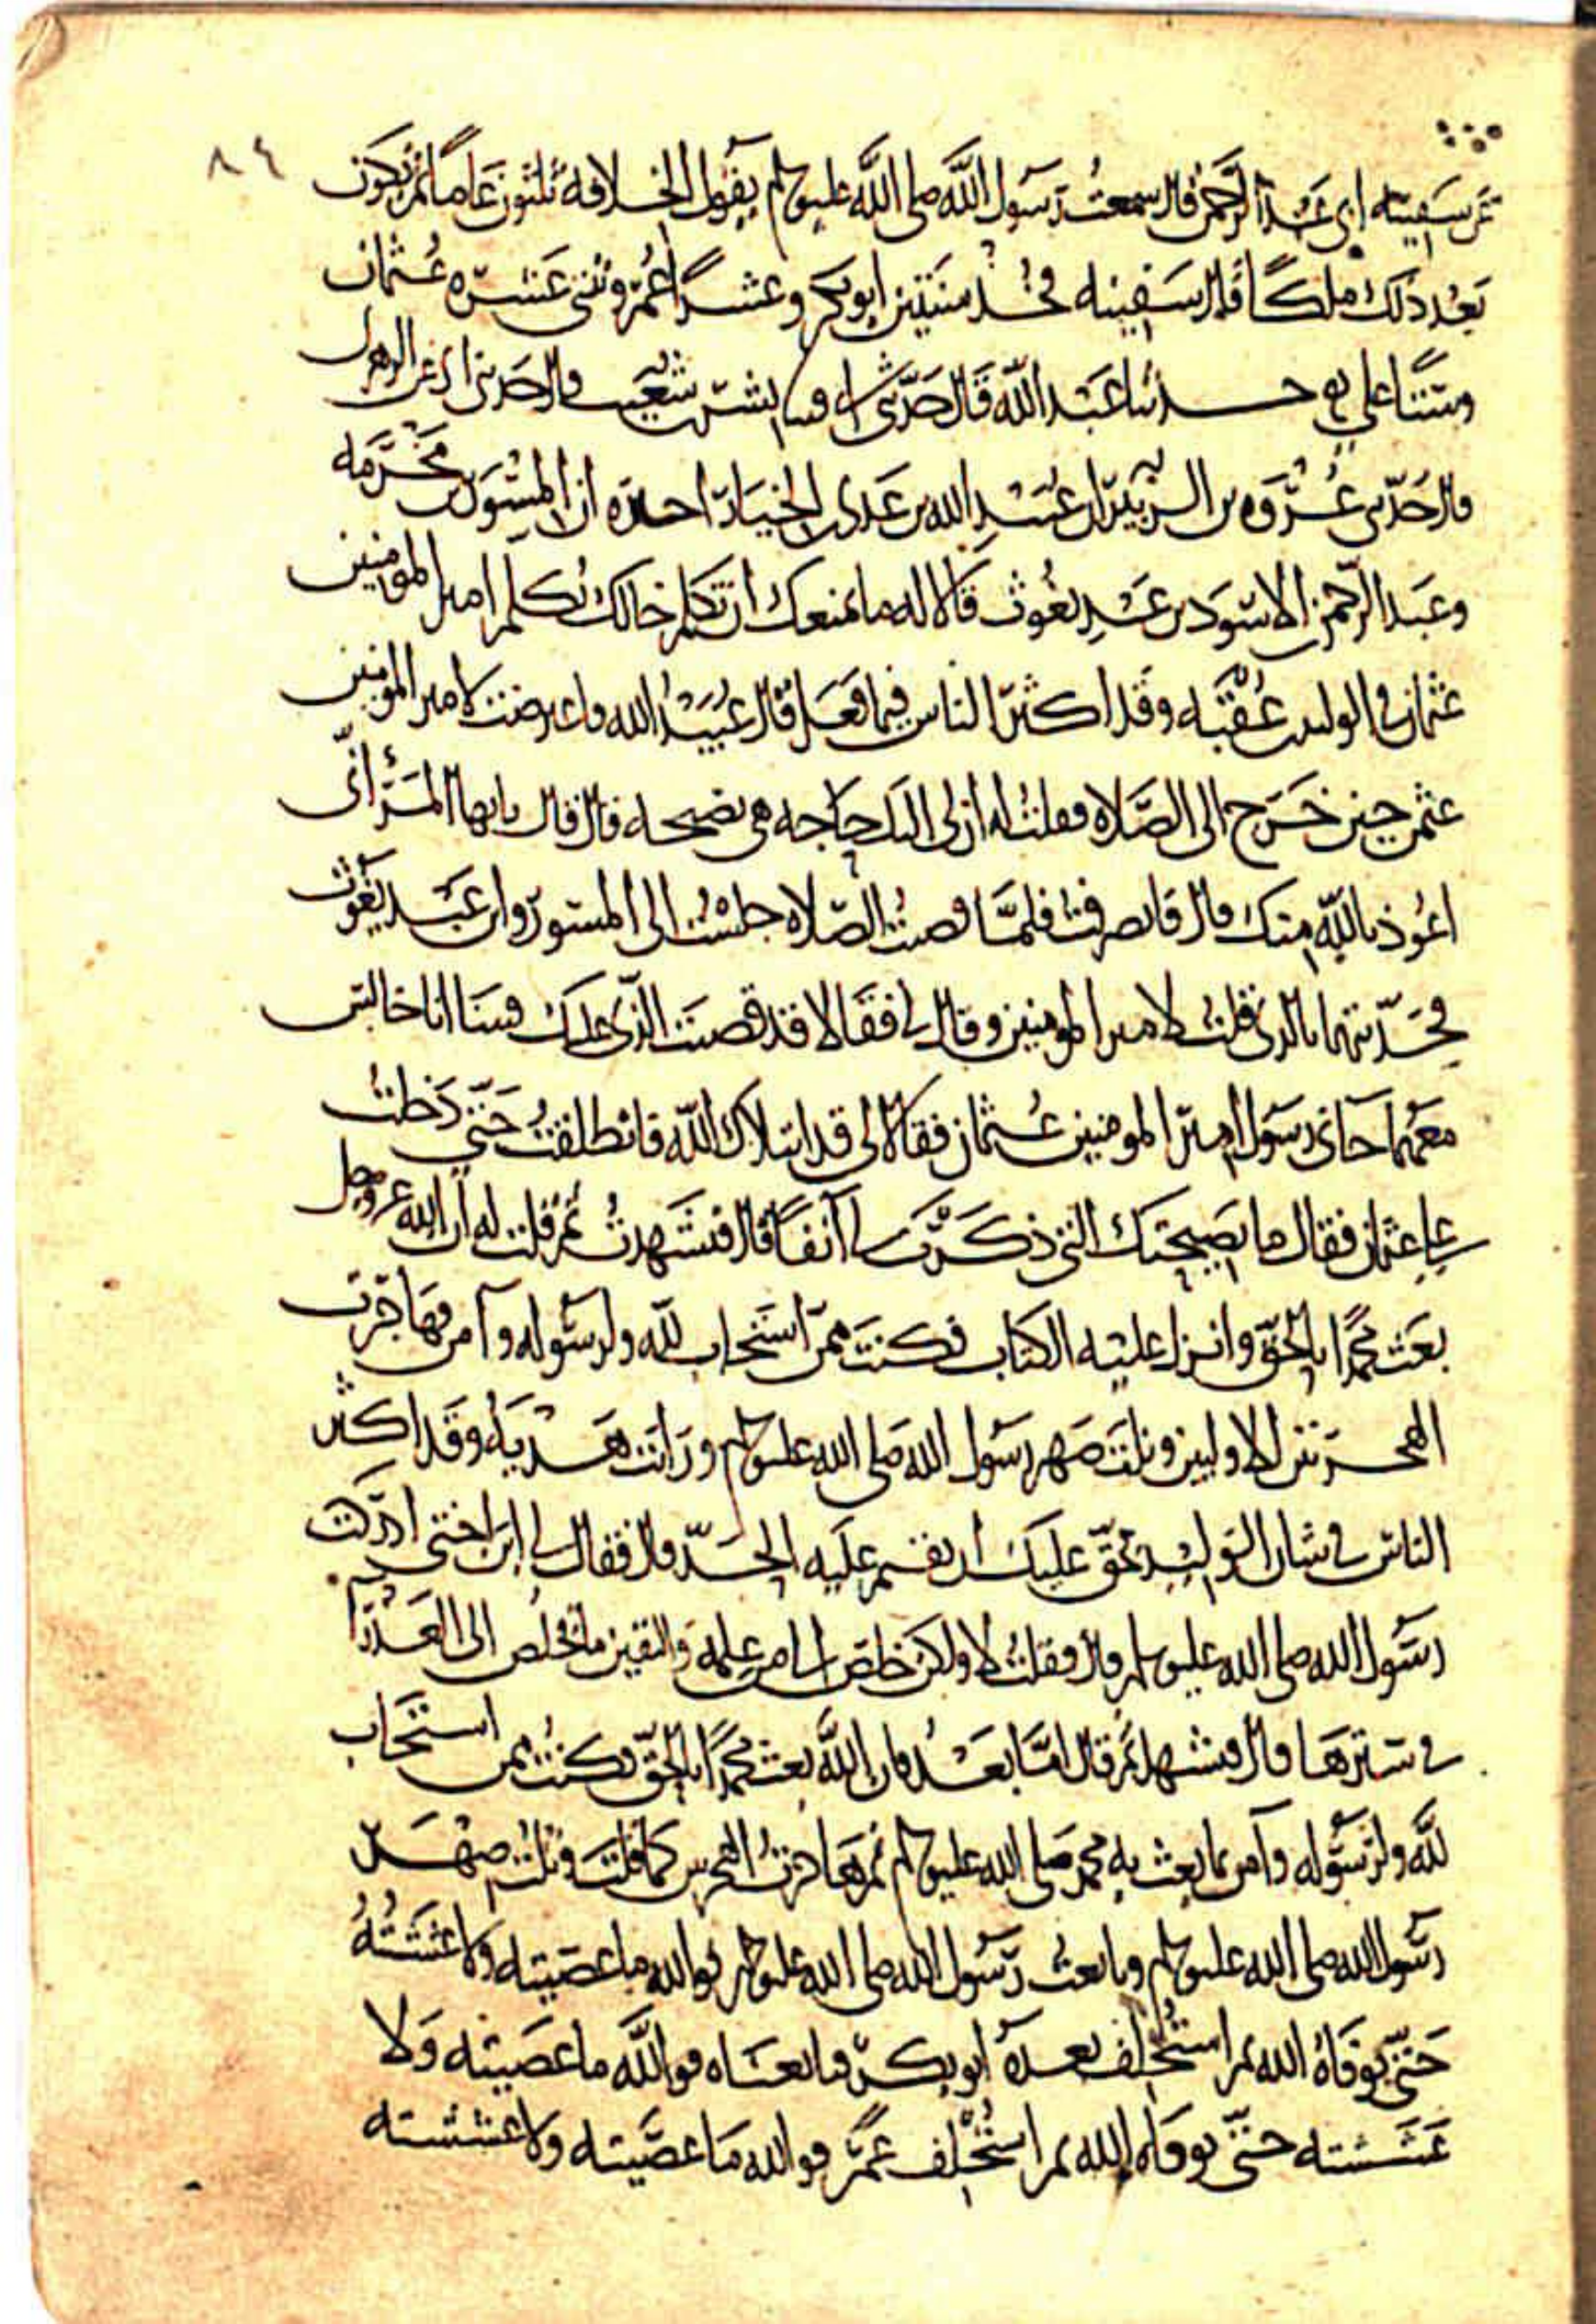 ٨٤
عن سفينه ابى عبد الرحمن قال سمعت رسول الله صلى الله عليه وسلم يقول الخلافه ثلثون عاما ثم يكون
بعد ذلك ملكا قال سفينه فخذ سنتين ابو بكر وعشرا عمر وثنتى عشره عثمان
وستا على حدثنا عبد الله قال حدثنى ابى بشر بن شعيب قال حدثنى ابى عن الزهرى
قال حدثنى عروه بن الزبير ان عبيد الله بن عدى بن الخيار اخبره ان المسور بن مخرمه
وعبد الرحمن بن الاسود بن عبد يغوث قالا له ما يمنعك ان تكلم خالك تكلم امير المومنين
عثمان فى الوليد بن عقبه وقد اكثر الناس فيما فعل قال عبيد الله فاعترضت لامير المومنين
عثمن حين خرج الى الصلاه فقلت له ان لى اليك حاجه هى نصيحه قال فقال يايها المرء انى
اعوذ بالله منك قال فانصرفت فلما قضيت الصلاه جلست الى المسور وابن عبد يغوث
فحدثتهما بالذى قلت لامير المومنين وقال لى فقالا قد قضيت الذى عليك فبينا انا جالس
معهما جانى رسول امير المومنين عثمان فقالا لى قد ابتلاك الله فانطلقت حتى دخلت
على عثمان فقال ما نصيحتك التى ذكرت لى آنفا قال فتشهدت ثم قلت له ان الله عز وجل
بعث محمدا بالحق وانزل عليه الكتاب فكنت ممن استجاب لله ولرسوله وآمن فهاجرت
الهجرتين الاوليين ونلت صهر رسول الله صلى الله عليه وسلم ورايت هديه وقد اكثر
الناس فى شان الوليد فحق عليك ان تقيم عليه الحد قال فقال لى ابن اختى ادركت
رسول الله صلى الله عليه وسلم قال فقلت لا ولكن خلص الى من علمه واليقين ما يخلص الى العذرا
فى سترها قال فتشهد ثم قال اما بعد فان الله بعث محمدا بالحق فكنت ممن استجاب
لله ولرسوله وآمن بما بعث به محمد صلى الله عليه وسلم ثم هاجرت الهجرتين كما قلت ونلت صهر
رسول الله صلى الله عليه وسلم وبايعت رسول الله صلى الله عليه وسلم فوالله ما عصيته ولا غششته
حتى توفاه الله ثم استخلف بعده ابو بكر فبايعناه فوالله ما عصيته ولا
غششته حتى توفاه الله ثم استخلف عمر فوالله ما عصيته ولا غششته